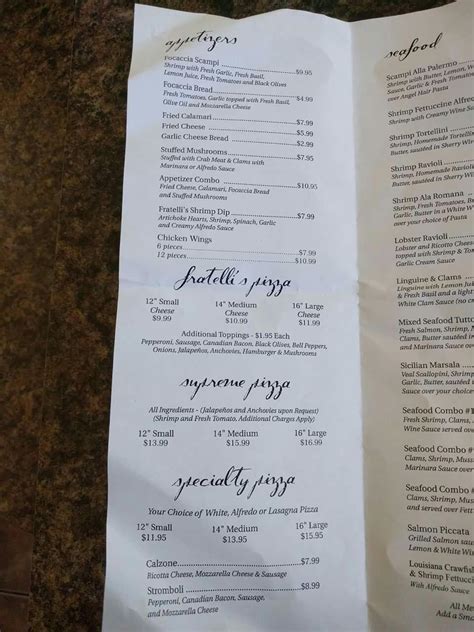 appetizers
Focaccia Scampi
Shrimp with Fresh Garlic, Fresh Basil, $9.95
Lemon Juice, Fresh Tomatoes and Black Olives
Focaccia Bread $4.99
Fresh Tomatoes, Garlic topped with Fresh Basil,
Olive Oil and Mozzarella Cheese
Fried Calamari $7.99
Fried Cheese $5.99
Garlic Cheese Bread $2.99
Stuffed Mushrooms $7.95
Stuffed with Crab Meat & Clams with
Marinara or Alfredo Sauce
Appetizer Combo $10.95
Fried Cheese, Calamari, Focaccia Bread
and Stuffed Mushrooms
Fratelli's Shrimp Dip $7.99
Artichoke Hearts, Shrimp, Spinach, Garlic
and Creamy Alfredo Sauce
Chicken Wings
6 pieces $7.99
12 pieces $10.99
fratelli's pizza
12" Small 14" Medium 16" Large
Cheese Cheese Cheese
$9.99 $10.99 $11.99
Additional Toppings - $1.95 Each
Pepperoni, Sausage, Canadian Bacon, Black Olives, Bell Peppers,
Onions, Jalapeños, Anchovies, Hamburger & Mushrooms
supreme pizza
All Ingredients - (Jalapeños and Anchovies upon Request)
(Shrimp and Fresh Tomato. Additional Charges Apply)
12" Small 14" Medium 16" Large
$13.99 $15.99 $16.99
specialty pizza
Your Choice of White, Alfredo or Lasagna Pizza
12" Small 14" Medium 16" Large
$11.95 $13.95 $15.95
Calzone $7.99
Ricotta Cheese, Mozzarella Cheese & Sausage
Stromboli $8.99
Pepperoni, Canadian Bacon, Sausage,
and Mozzarella Cheese
seafood
Scampi Alla Palermo
Shrimp with Butter, Lemon, W
Sauce, Garlic & Fresh Tomato
over Angel Hair Pasta
Shrimp Fettuccine Alfre
Shrimp with Creamy Wine S
Shrimp Tortellini
Shrimp, Homemade Tortellini
Butter, sautéed in Sherry Win
Shrimp Ravioli
Shrimp, Homemade Ravioli
Butter, sautéed in Sherry W
Shrimp Ala Romana
Shrimp, Fresh Tomatoes, Be
Garlic, Butter, sautéed in
and Alfredo Sauce
Lobster Ravioli
Lobster and Ricotta Cheese
topped with Shrimp &
Garlic Cream Sauce
Linguine & Clams
Linguine with Lemon Juice
& Fresh Basil and a light
White Clam Sauce (no
Mixed Seafood Tutto
Fresh Salmon, Shrimp,
Clams, sautéed in
and Marinara Sauce
Sicilian Marsala
Veal Scallopini, Shrimp
Garlic, Butter, sautéed
Sauce over your choice
Seafood Combo #1
Shrimp, Crawfish, Mu
Wine Sauce served ove
Seafood Combo #
Clams, Shrimp, Muss
Marinara Sauce over
Seafood Combo
Clams, Shrimp, Mus
and served over Fett
Salmon Piccata
Grilled Salmon
Lemon & White Win
Louisiana Crawfis
& Shrimp Fettucc
With Alfredo Sauce
All Me
Add a Sm